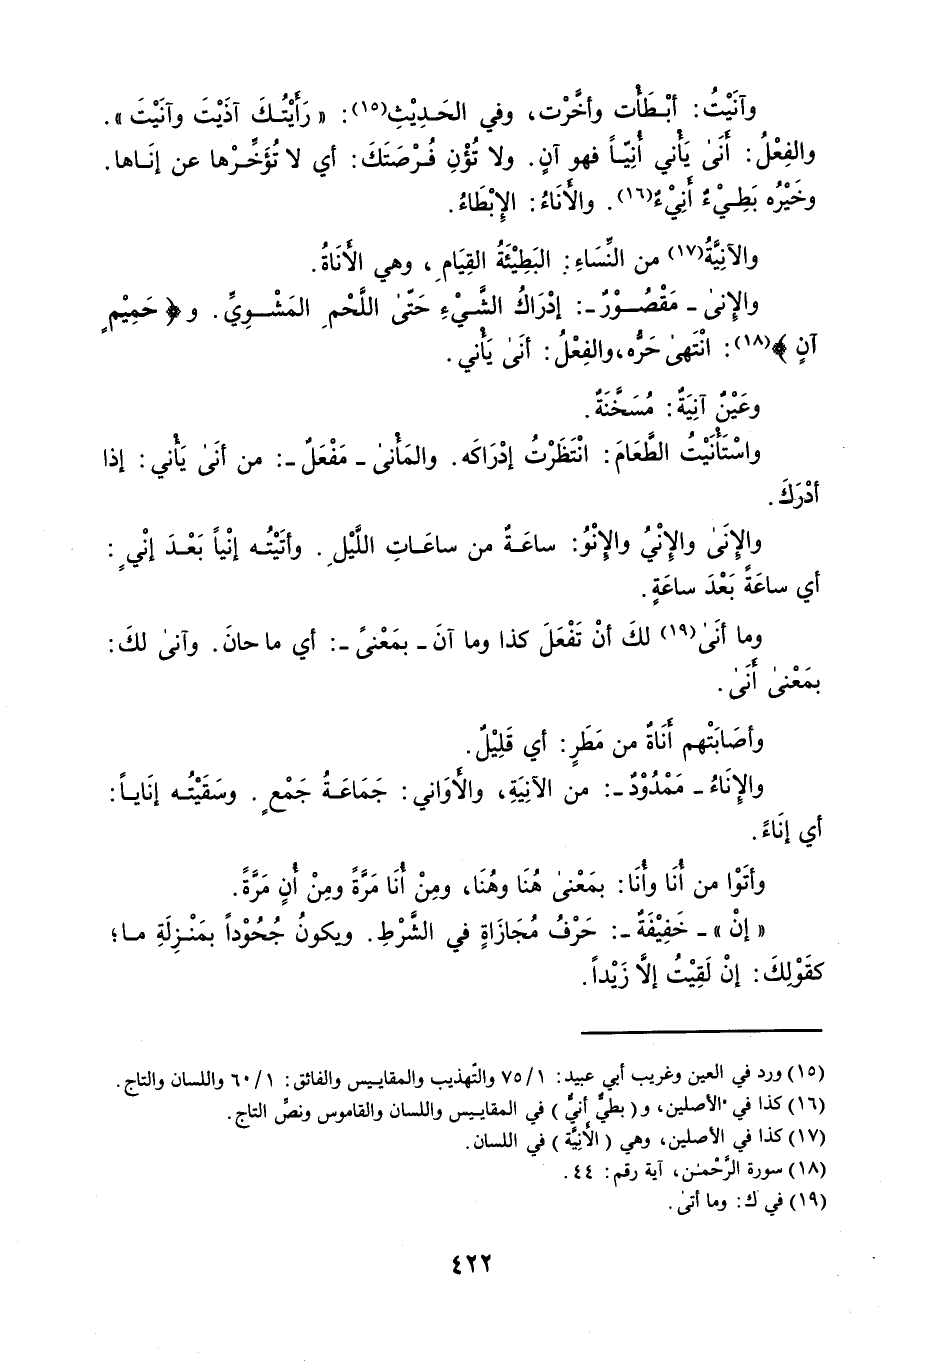 وآنَيْتُ: أبْطَأْت وأخَّرْت، وفي الحَدِيْثِ(١٥): « رَأَيْتُكَ آذَيْتَ وآنَيْتَ ».
والفِعْلُ: أَنَىٰ يَأْني أُنِيّاً فهو آنٍ. ولا تُؤْنِ فُرْصَتَكَ: أي لا تُؤَخِّرْها عن إنَاها.
وخَيْرُه بَطِيْءٌ أَنِيْءٌ(١٦). والأَنَاءُ: الإِبْطَاءُ.
والآنِيَّةُ(١٧) من النِّسَاءِ: البَطِيْئَةُ القِيَامِ، وهي الأَنَاةُ.
والإِنىٰ ـ مَقْصُوْرٌ ـ: إدْرَاكُ الشَّيْءِ حَتّىٰ اللَّحْمِ المَشْوِيِّ. و﴿ حَمِيْمٍ
آنٍ ﴾(١٨): انْتَهىٰ حَرُّه، والفِعْلُ: أنىٰ يَأْني.
وعَيْنٌ آنِيَةٌ: مُسَخَّنَةٌ.
واسْتَأْنَيْتُ الطَّعَامَ: انْتَظَرْتُ إدْرَاكَه. والمَأْنىٰ ـ مَفْعَلٌ ـ: من أنىٰ يَأْني: إذا
أدْرَكَ.
والإِنَىٰ والإِنْيُ والإِنْوُ: ساعَةٌ من ساعَاتِ اللَّيْلِ. وأتَيْتُه إنْياً بَعْدَ إنْيٍ:
أي ساعَةً بَعْدَ ساعَةٍ.
وما أنَىٰ(١٩) لكَ أنْ تَفْعَلَ كذا وما آنَ ـ بمَعْنىً ـ: أي ما حانَ. وآنىٰ لكَ:
بمَعْنىٰ أَنَىٰ.
وأصَابَتْهم أَنَاةٌ من مَطَرٍ: أي قَلِيْلٌ.
والإِنَاءُ ـ مَمْدُوْدٌ ـ: من الآنِيَةِ، والأَوَاني: جَمَاعَةُ جَمْعٍ. وسَقَيْتُه إنَاياً:
أي إنَاءً.
وأتَوْا من أُنَا وأُنَا: بمَعْنىٰ هُنَا وهُنَا، ومِنْ أُنَا مَرَّةً ومِنْ أُنٍ مَرَّةً.
« إنْ » ـ خَفِيْفَةٌ ـ: حَرْفُ مُجَازَاةٍ في الشَّرْطِ. ويكونُ جُحُوْداً بمَنْزِلَةِ ما؛
كقَوْلِكَ: إنْ لَقِيْتُ إلَّا زَيْداً.
(١٥) ورد في العين وغريب أبي عبيد: ١/ ٧٥ والتّهذيب والمقاييس والفائق: ١/ ٦٠ واللسان والتاج.
(١٦) كذا في الأصلين، و( بطيٌّ أنيٌّ ) في المقاييس واللسان والقاموس ونصِّ التاج.
(١٧) كذا في الأصلين، وهي ( الأَنِيَّة ) في اللسان.
(١٨) سورة الرَّحْمٰن، آية رقم: ٤٤.
(١٩) في ك: وما أتىٰ.
٤٢٢